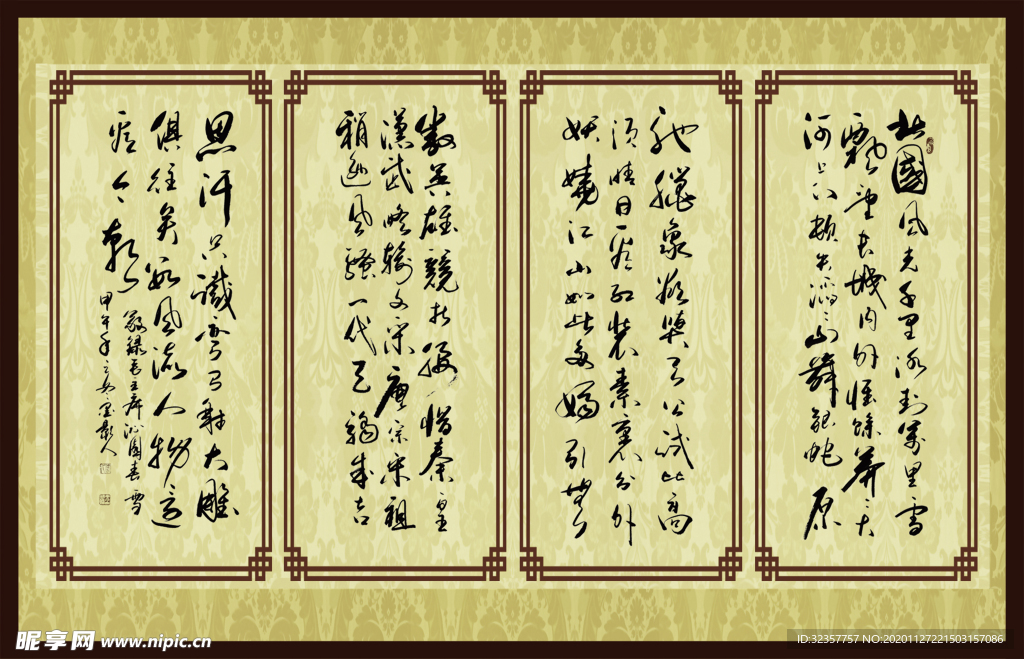 北國風光千里冰封萬里雪
飄望長城内外惟餘莽莽大
河上下頓失滔滔山舞銀蛇原
馳蠟象欲與天公試比高
須晴日看紅裝素裹分外
妖嬈江山如此多嬌引無
數英雄競折腰惜秦皇
漢武略輸文采唐宗宋祖
稍遜風騷一代天驕成吉
思汗只識彎弓射大雕
俱往矣數風流人物還
看今朝
敬録毛主席沁園春雪
甲午年之
昵享网 www.nipic.cn
ID:32357757 NO:20201127221503157086